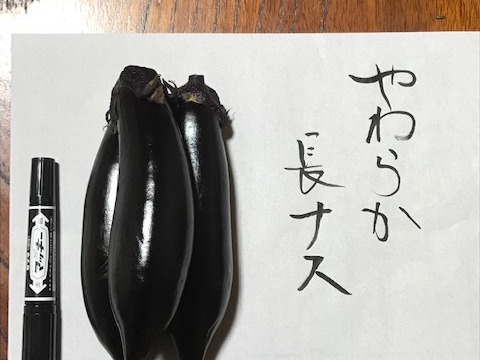 やわらか
長ナス